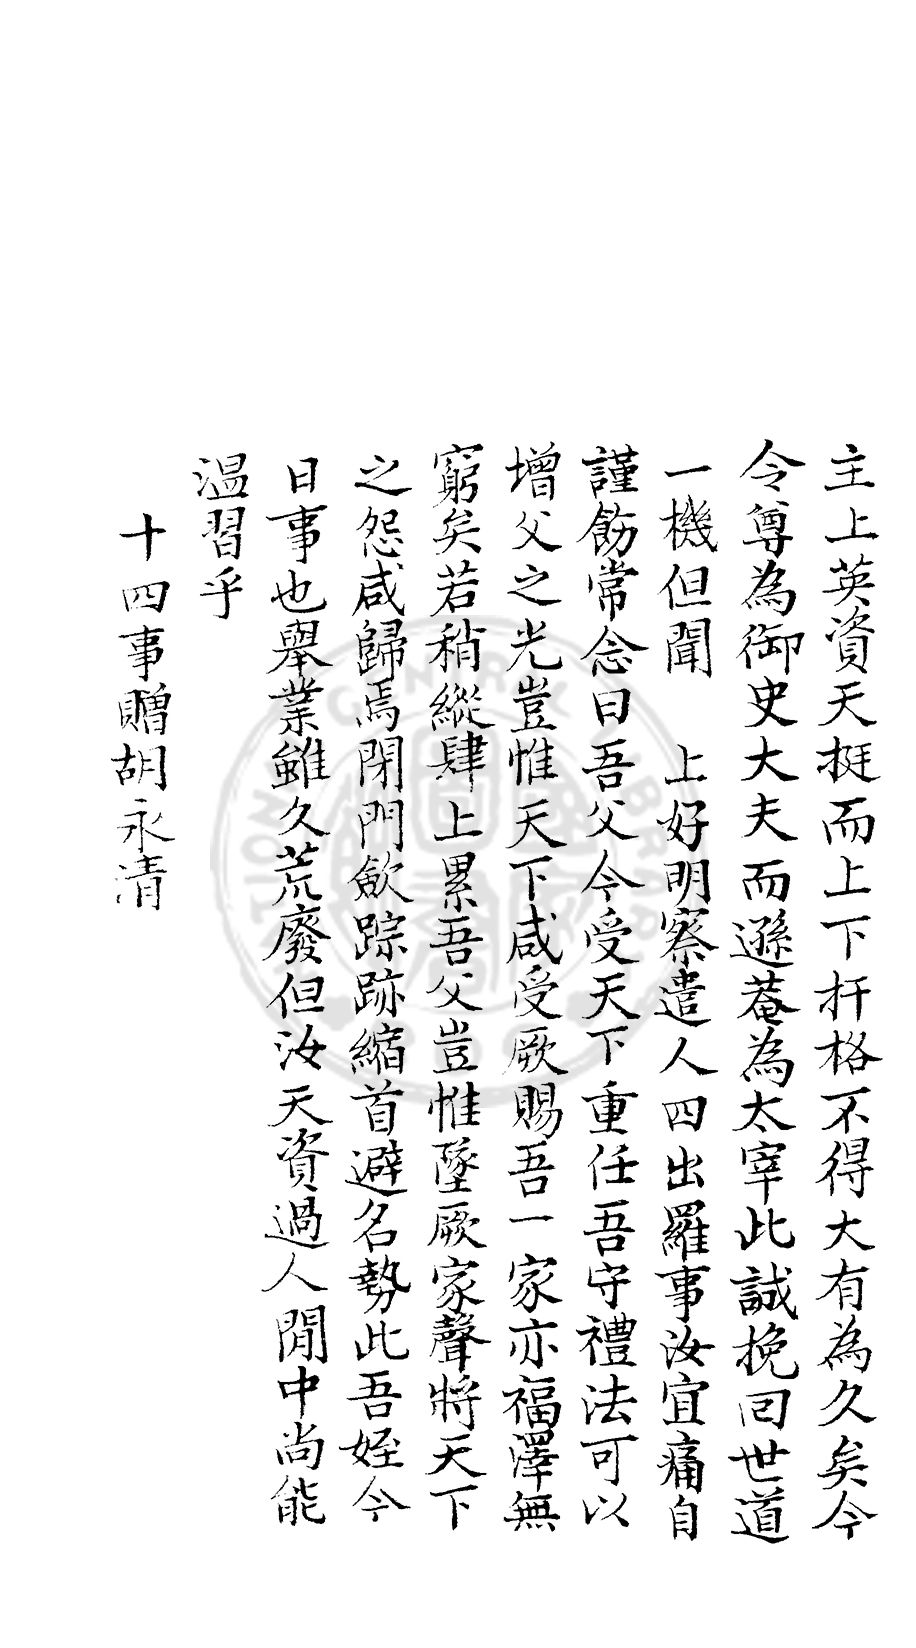 主上英資天挺而上下扞格不得大有為久矣今
令尊為御史大夫而遜菴為太宰此誠挽回世道
一機但聞　上好明察遣人四出羅事汝宜痛自
謹飭常念曰吾父今受天下重任吾守禮法可以
增父之光豈惟天下咸受厥賜吾一家亦福澤無
窮矣若稍縱肆上累吾父豈惟墜厥家聲將天下
之怨咸歸焉閉門歛踪跡縮首避名勢此吾姪今
日事也舉業雖久荒廢但汝天資過人閒中尚能
温習乎
十四事贈胡永清